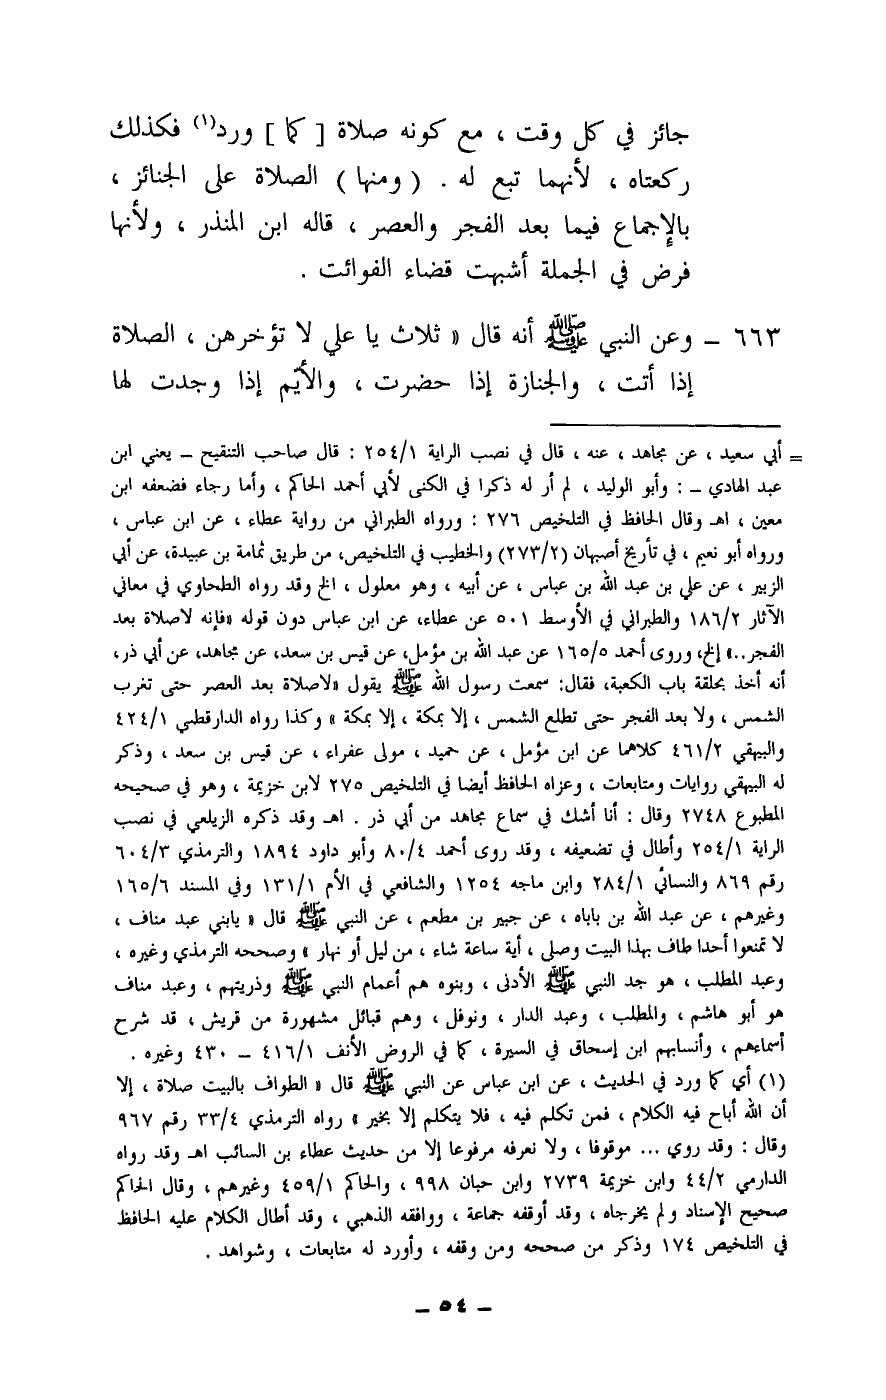 جائز في كل وقت ، مع كونه صلاة [ كما ] ورد(١) فكذلك
ركعتاه ، لأنهما تبع له . ( ومنها ) الصلاة على الجنائز ،
بالإجماع فيما بعد الفجر والعصر ، قاله ابن المنذر ، ولأنها
فرض في الجملة أشبهت قضاء الفوائت .
٦٦٣ – وعن النبي ﷺ أنه قال « ثلاث يا علي لا تؤخرهن ، الصلاة
إذا أتت ، والجنازة إذا حضرت ، والأيّم إذا وجدت لها
= أبي سعيد ، عن مجاهد ، عنه ، قال في نصب الراية ٢٥٤/١ : قال صاحب التنقيح – يعني ابن
عبد الهادي – : وأبو الوليد ، لم أر له ذكرا في الكنى لأبي أحمد الحاكم ، وأما رجاء فضعفه ابن
معين ، اهـ وقال الحافظ في التلخيص ٢٧٦ : ورواه الطبراني من رواية عطاء ، عن ابن عباس ،
ورواه أبو نعيم ، في تأريخ أصبهان (٢٧٣/٢) والخطيب في التلخيص، من طريق ثمامة بن عبيدة، عن أبي
الزبير ، عن علي بن عبد الله بن عباس ، عن أبيه ، وهو معلول ، الخ وقد رواه الطحاوي في معاني
الآثار ١٨٦/٢ والطبراني في الأوسط ٥٠١ عن عطاء، عن ابن عباس دون قوله «فإنه لاصلاة بعد
الفجر..» إلخ، وروى أحمد ١٦٥/٥ عن عبد الله بن مؤمل، عن قيس بن سعد، عن مجاهد، عن أبي ذر،
أنه أخذ بحلقة باب الكعبة، فقال: سمعت رسول الله ﷺ يقول «لاصلاة بعد العصر حتى تغرب
الشمس ، ولا بعد الفجر حتى تطلع الشمس ، إلا بمكة ، إلا بمكة » وكذا رواه الدارقطي ٤٢٤/١
والبيهقي ٤٦١/٢ كلاهما عن ابن مؤمل ، عن حميد ، مولى عفراء ، عن قيس بن سعد ، وذكر
له البيهقي روايات ومتابعات ، وعزاه الحافظ أيضا في التلخيص ٢٧٥ لابن خزيمة ، وهو في صحيحه
المطبوع ٢٧٤٨ وقال : أنا أشك في سماع مجاهد من أبي ذر . اهـ وقد ذكره الزيلعي في نصب
الراية ٢٥٤/١ وأطال في تضعيفه ، وقد روى أحمد ٨٠/٤ وأبو داود ١٨٩٤ والترمذي ٦٠٤/٣
رقم ٨٦٩ والنسائي ٢٨٤/١ وابن ماجه ١٢٥٤ والشافعي في الأم ١٣١/١ وفي المسند ١٦٥/٦
وغيرهم ، عن عبد الله بن باباه ، عن جبير بن مطعم ، عن النبي ﷺ قال « يابني عبد مناف ،
لا تمنعوا أحدا طاف بهذا البيت وصلى ، أية ساعة شاء ، من ليل أو نهار » وصححه الترمذي وغيره ،
وعبد المطلب ، هو جد النبي ﷺ الأدنى ، وبنوه هم أعمام النبي ﷺ وذريتهم ، وعبد مناف
هو أبو هاشم ، والمطلب ، وعبد الدار ، ونوفل ، وهم قبائل مشهورة من قريش ، قد شرح
أسماءهم ، وأنسابهم ابن إسحاق في السيرة ، كما في الروض الأنف ٤١٦/١ – ٤٣٠ وغيره .
(١) أي كما ورد في الحديث ، عن ابن عباس عن النبي ﷺ قال « الطواف بالبيت صلاة ، إلا
أن الله أباح فيه الكلام ، فمن تكلم فيه ، فلا يتكلم إلا بخير » رواه الترمذي ٣٣/٤ رقم ٩٦٧
وقال : وقد روي ... موقوفا ، ولا نعرفه مرفوعا إلا من حديث عطاء بن السائب اهـ وقد رواه
الدارمي ٤٤/٢ وابن خزيمة ٢٧٣٩ وابن حبان ٩٩٨ ، والحاكم ٤٥٩/١ وغيرهم ، وقال الحاكم
صحيح الإسناد ولم يخرجاه ، وقد أوقفه جماعة ، ووافقه الذهبي ، وقد أطال الكلام عليه الحافظ
في التلخيص ١٧٤ وذكر من صححه ومن وقفه ، وأورد له متابعات ، وشواهد .
– ٥٤ –